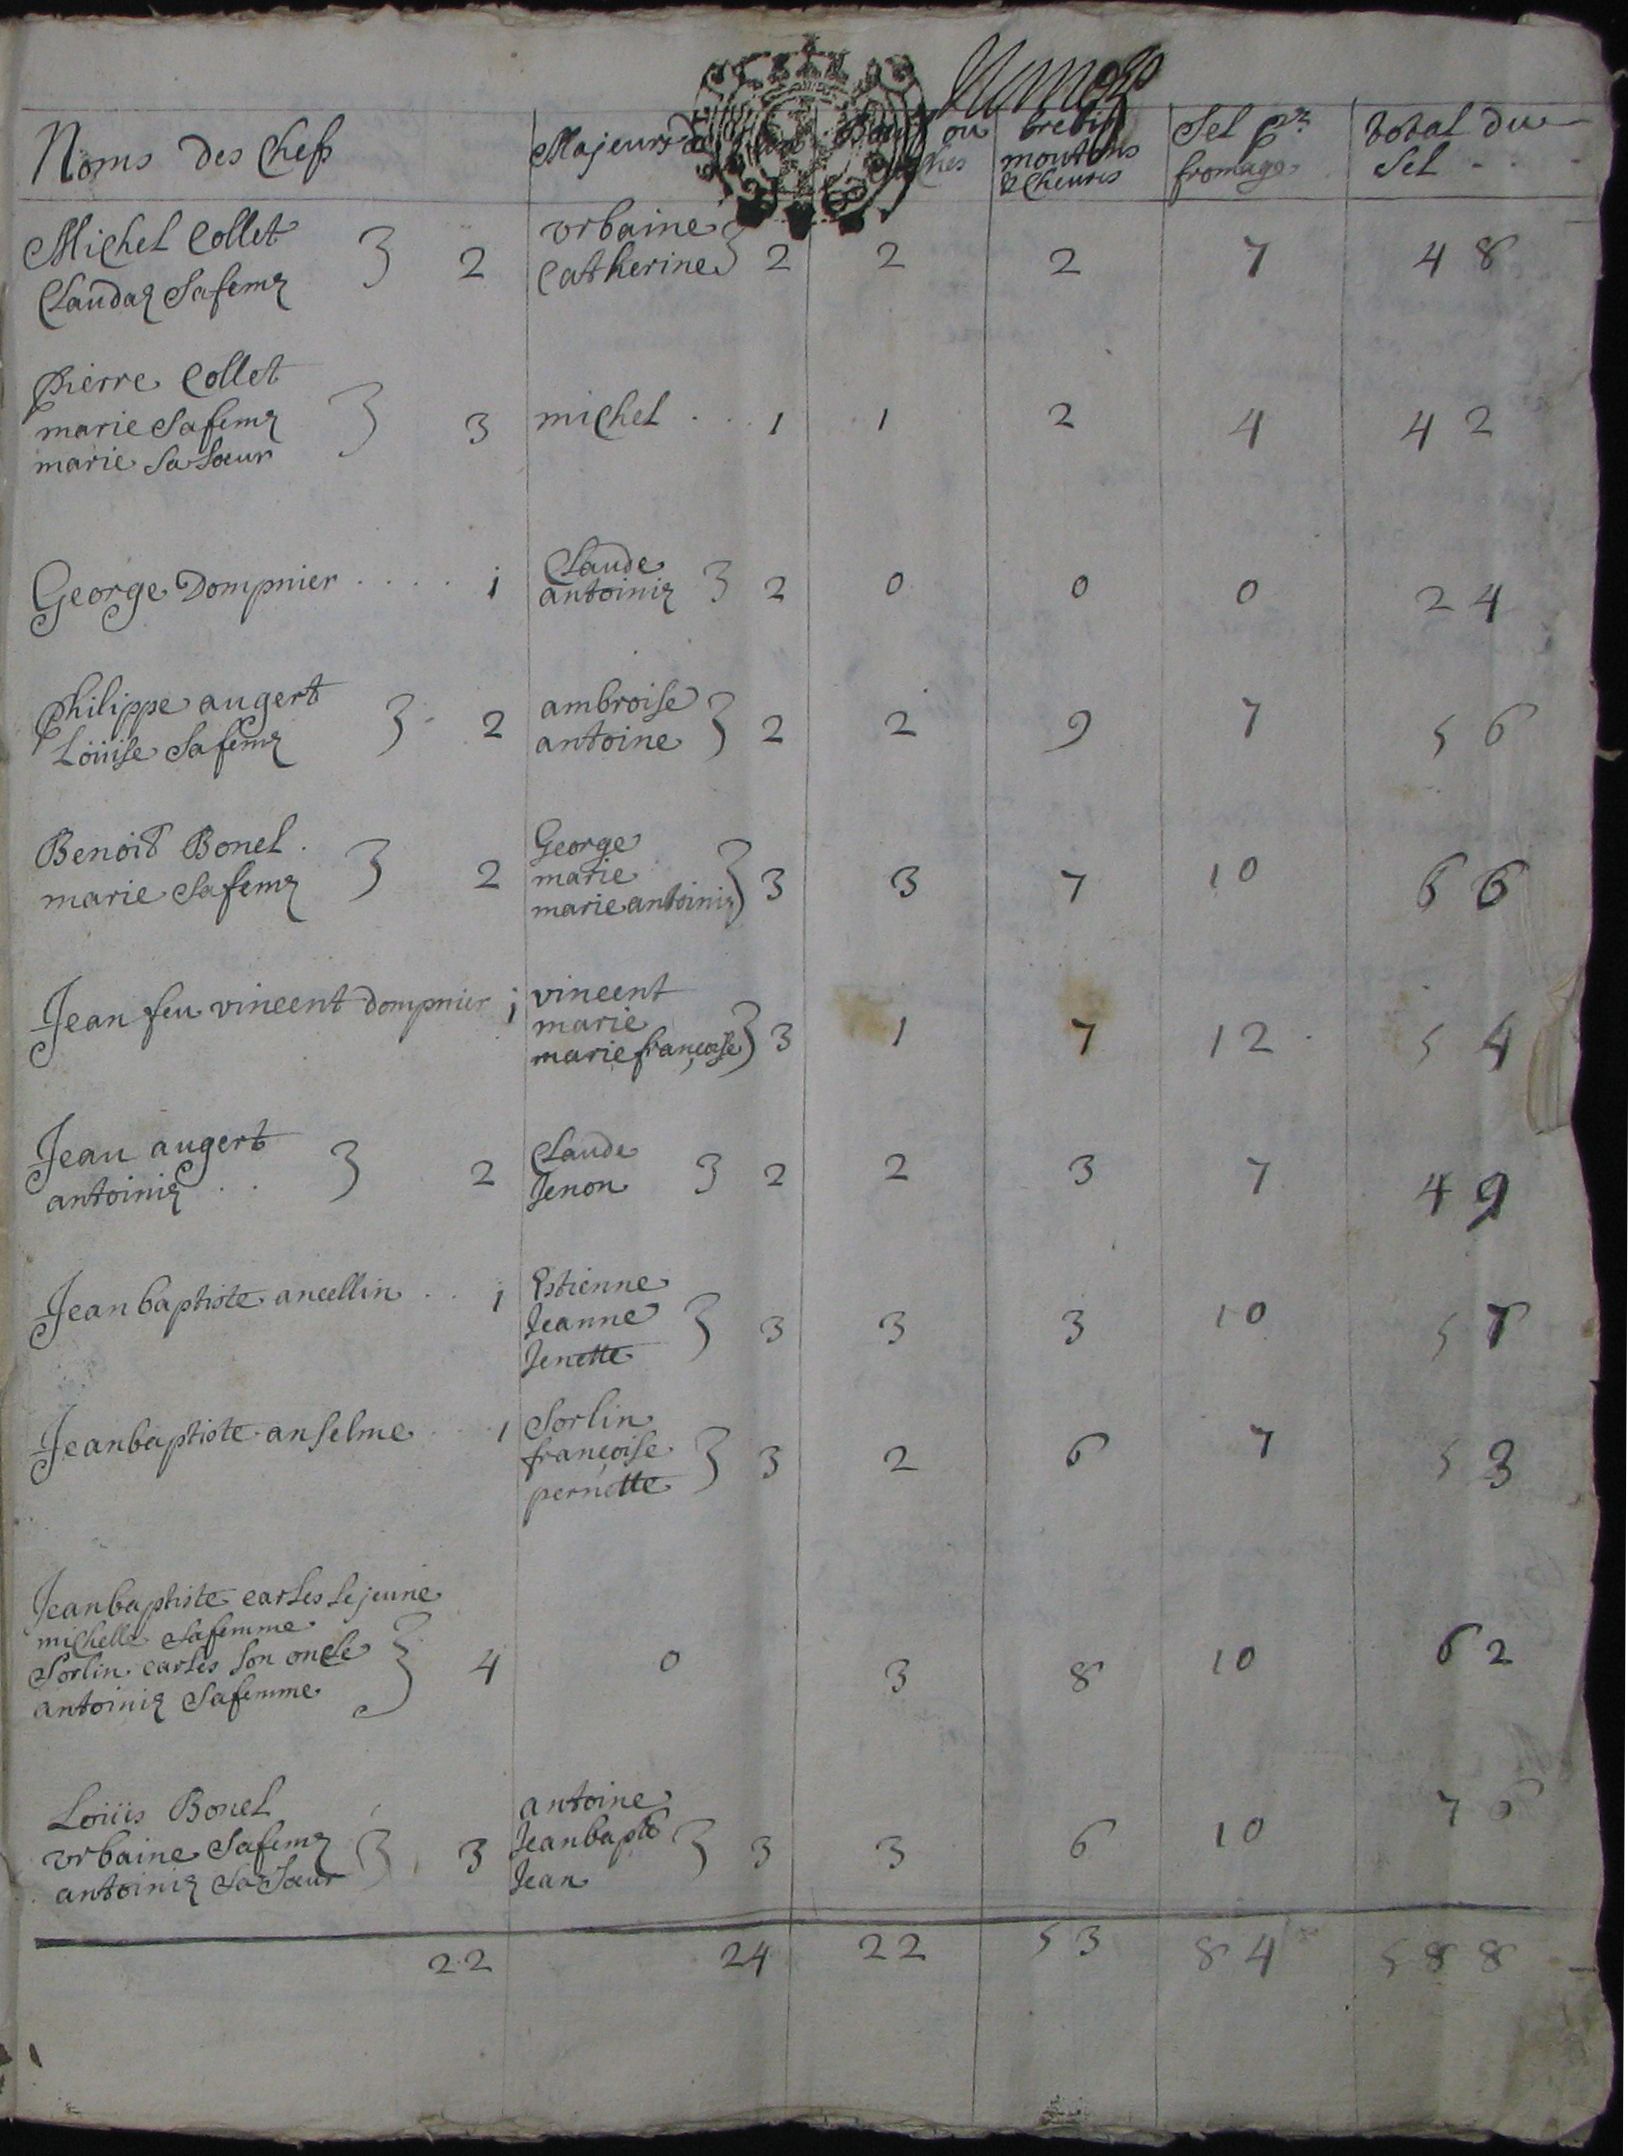 Noms des Chefs Majeurs ou brebis Sel pr total du
moutons
& Cheures fromage Sel
Michel Collet 3 2 vrbaine 3 2 2 2 7 48
Claudaz Safemz Catherine
Pierre Collet
marie Safemz 3 3 michel 1 1 2 4 42
marie Sa Sœur
George Dompnier 1 Claude 3 2 0 0 0 24
antoiniz
Philippe augert 3 2 ambroise 3 2 2 9 7 56
Loüise Safemz antoine
Benoit Bonel 3 2 George
marie Safemz marie 3 3 3 7 10 66
marie antoiniz
Jean feu vincent dompnier 1 vincent
marie 3 3 1 7 12 54
marie françoise
Jean augert 3 2 Claude 3 2 2 3 7 49
antoiniz Jenon
Jean baptiste ancellin 1 Estienne
Jeanne 3 3 3 3 10 57
Jenette
Jean baptiste anselme 1 Sorlin
françoise 3 3 2 6 7 53
pernette
Jean baptiste carles le jeune
michelle Safemme
Sorlin carles son oncle 3 4 0 3 8 10 62
antoiniz Safemme
Loüis Bonel antoine
vrbaine Safemz 3 3 Jean bapte 3 3 3 6 10 76
antoiniz Sa Sœur Jean
22 24 22 53 84 588